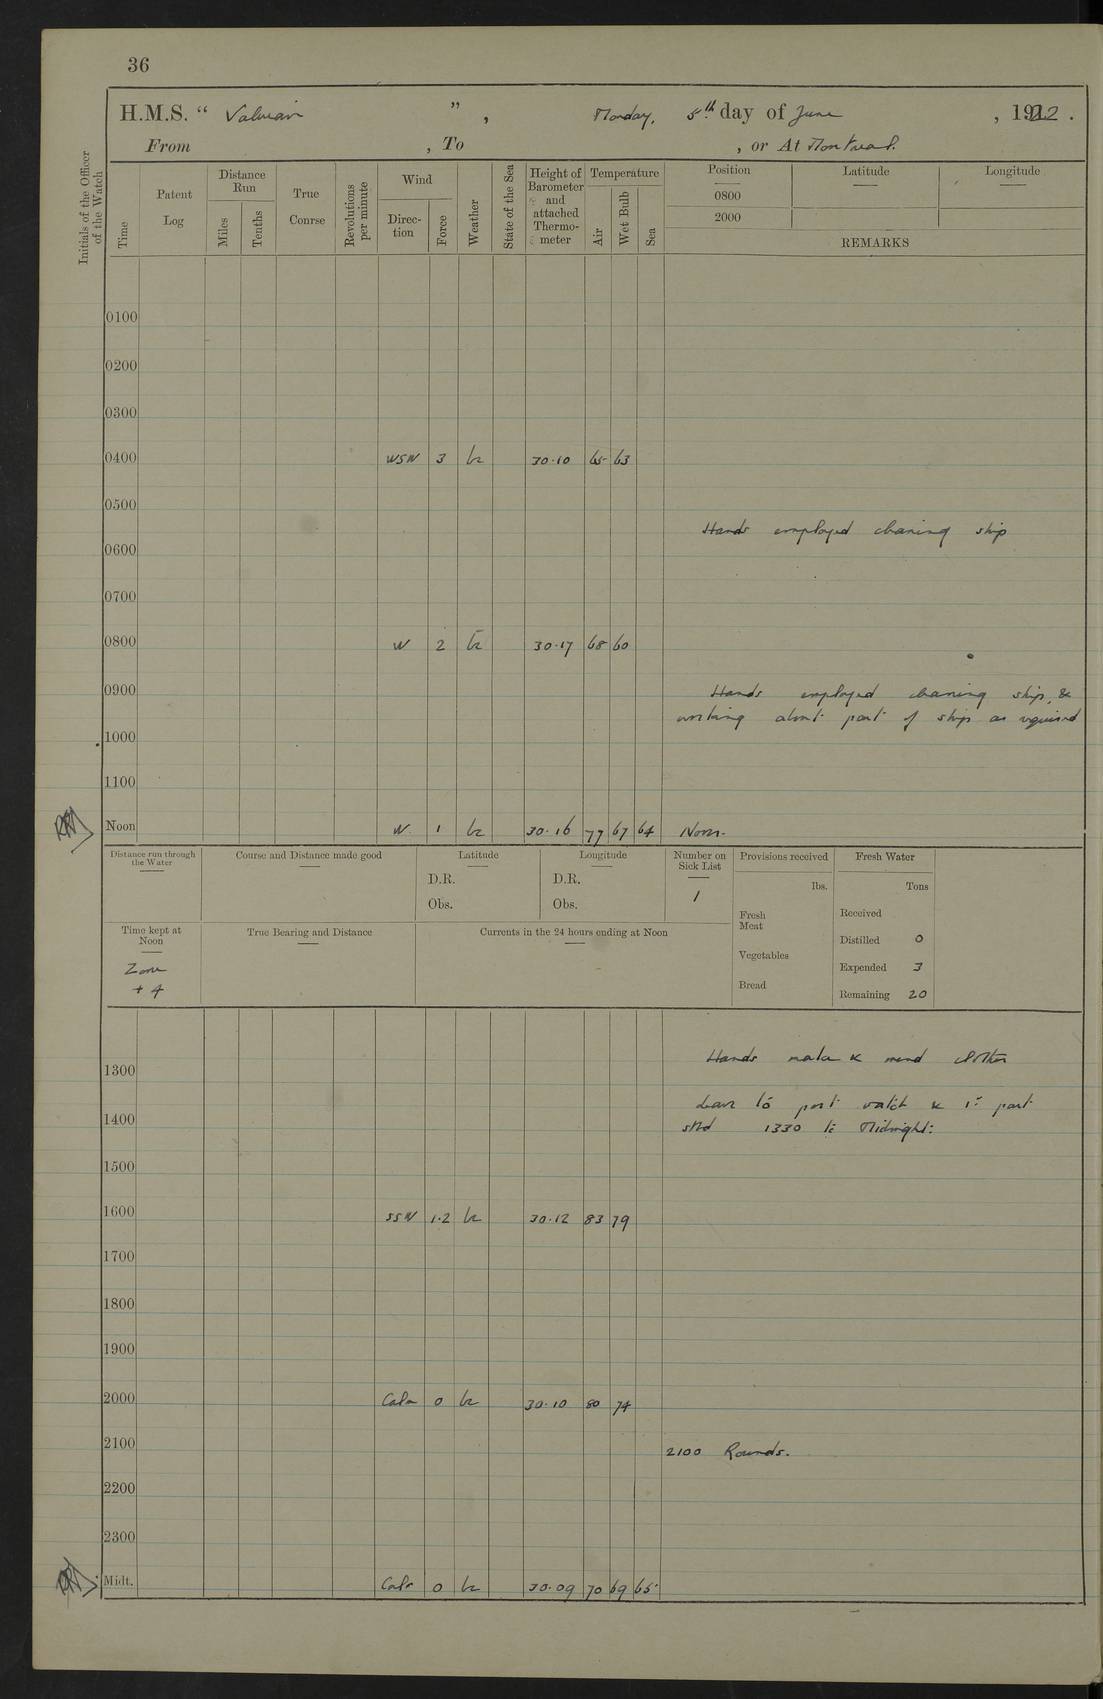 36
H.M.S. “ Valerian ” , Monday, 5th day of June , 1922 .
From , To , or At Montreal.
Initials of the Officer of the Watch
Time
Patent Log
Distance Run
Miles
Tenths
True Course
Revolutions per minute
Wind
Direction
Force
Weather
State of the Sea
Height of Barometer and attached Thermometer
Temperature
Air
Wet Bulb
Sea
Position
0800
2000
Latitude
Longitude
REMARKS
0100
0200
0300
0400 WSW 3 bc 30.10 65 63
0500
Hands employed cleaning ship
0600
0700
0800 W 2 bc 30.17 68 60
0900 Hands employed cleaning ship, &
working about part of ship as required
1000
1100
Noon W. 1 bc 30.16 77 67 64 Noon.
Distance run through the Water
Course and Distance made good
Latitude
D.R.
Obs.
Longitude
D.R.
Obs.
Number on Sick List
1
Provisions received
lbs.
Fresh Meat
Vegetables
Bread
Fresh Water
Tons
Received
Distilled 0
Expended 3
Remaining 20
Time kept at Noon
Zone
+ 4
True Bearing and Distance
Currents in the 24 hours ending at Noon
Hands make & mend clothes
1300
Leave to port watch & 1st part
1400 stbd 1330 to Midnight.
1500
1600 SSW 1.2 bc 30.12 83 79
1700
1800
1900
2000 Calm 0 bc 30.10 80 74
2100 2100 Rounds.
2200
2300
Midt. Calm 0 bc 30.09 70 69 65